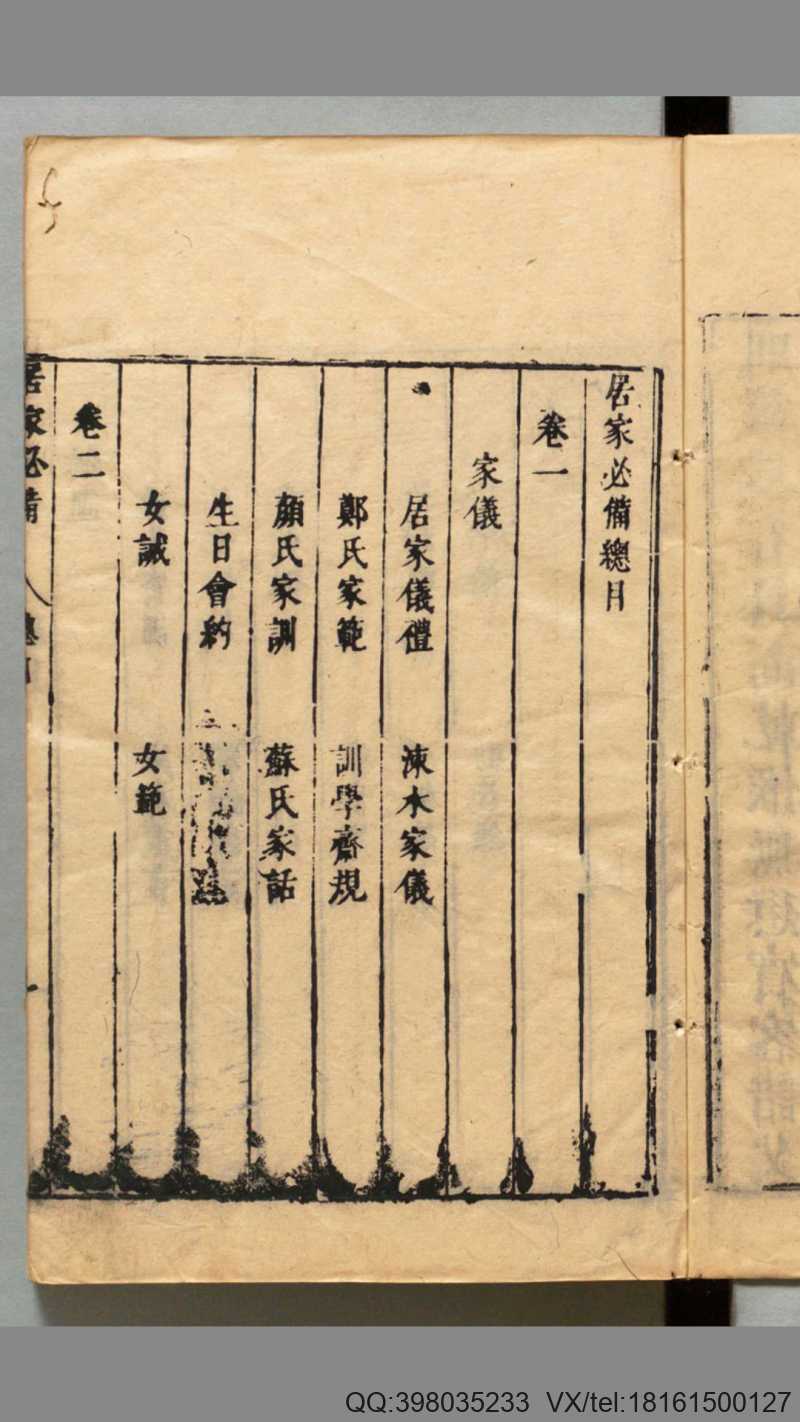 居家必備總目
卷一
家儀
居家儀禮 涑水家儀
鄭氏家範 訓學齋規
顏氏家訓 蘇氏家話
生日會約
女誡 女範
卷二
居家必備
QQ:398035233 VX/tel:18161500127